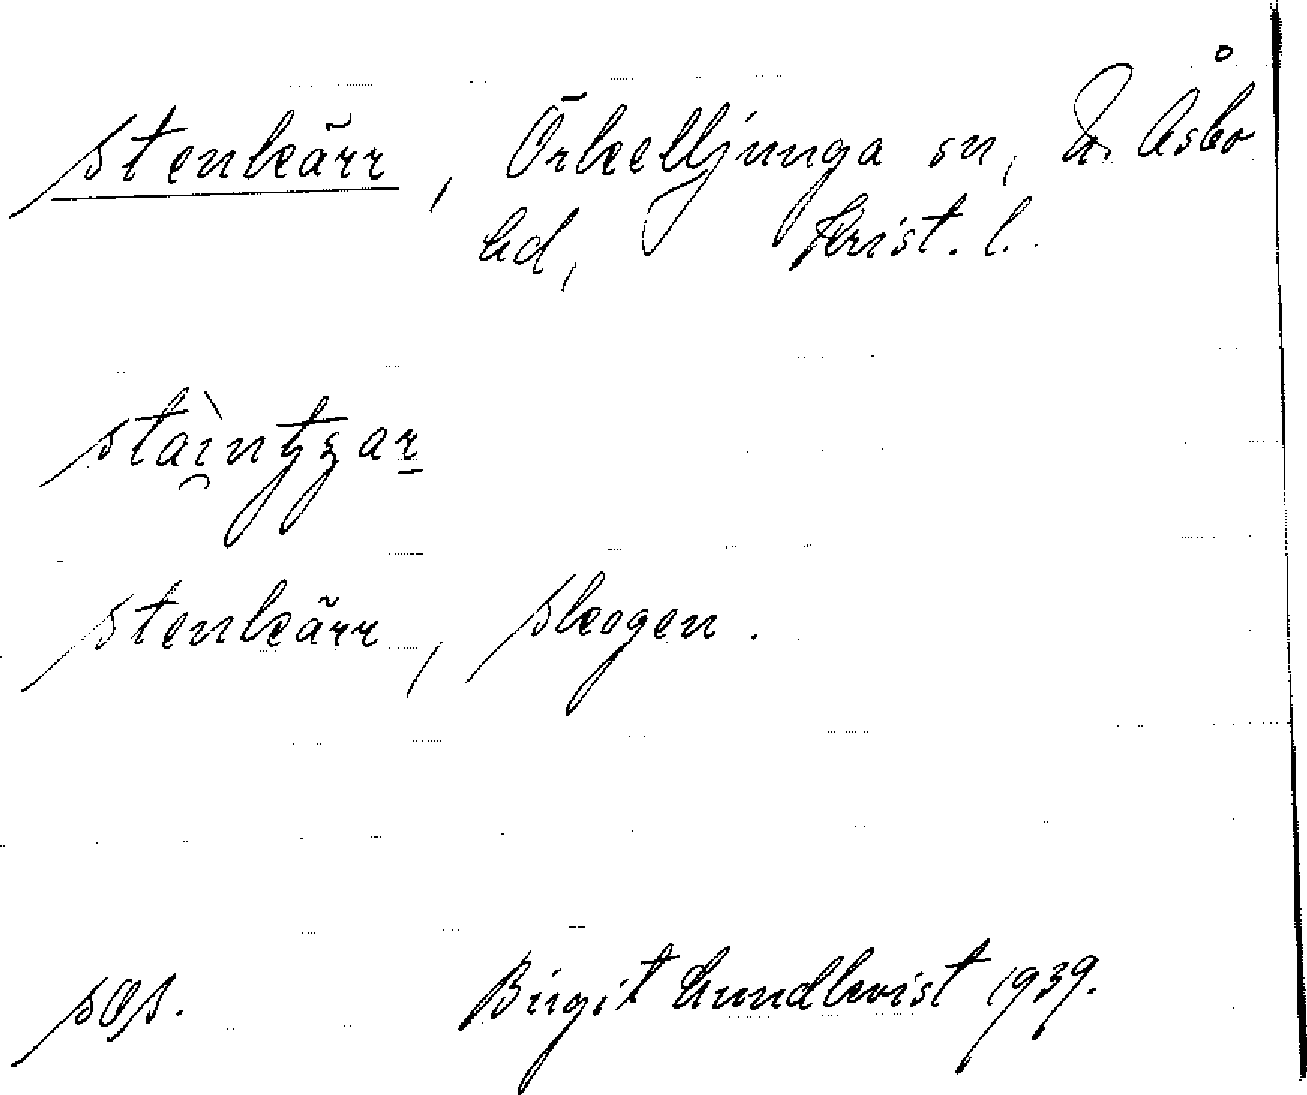 Stenkärr, Örkelljunga sn, N. Åsbo
hd, Krist. l.
Stenkärr, skogen.
Birgit Lundkvist 1939.